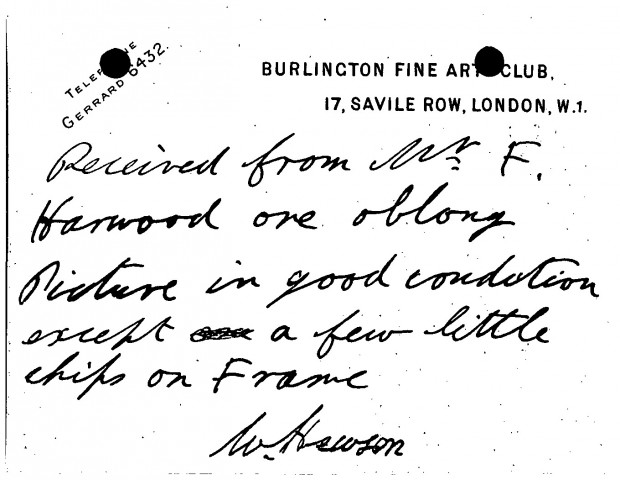 TELEPHONE
GERRARD 6432.
BURLINGTON FINE ART CLUB,
17, SAVILE ROW, LONDON, W.1.
Received from Mr. F.
Harwood one oblong
Picture in good condition
except a few little
chips on Frame
W. Hewson